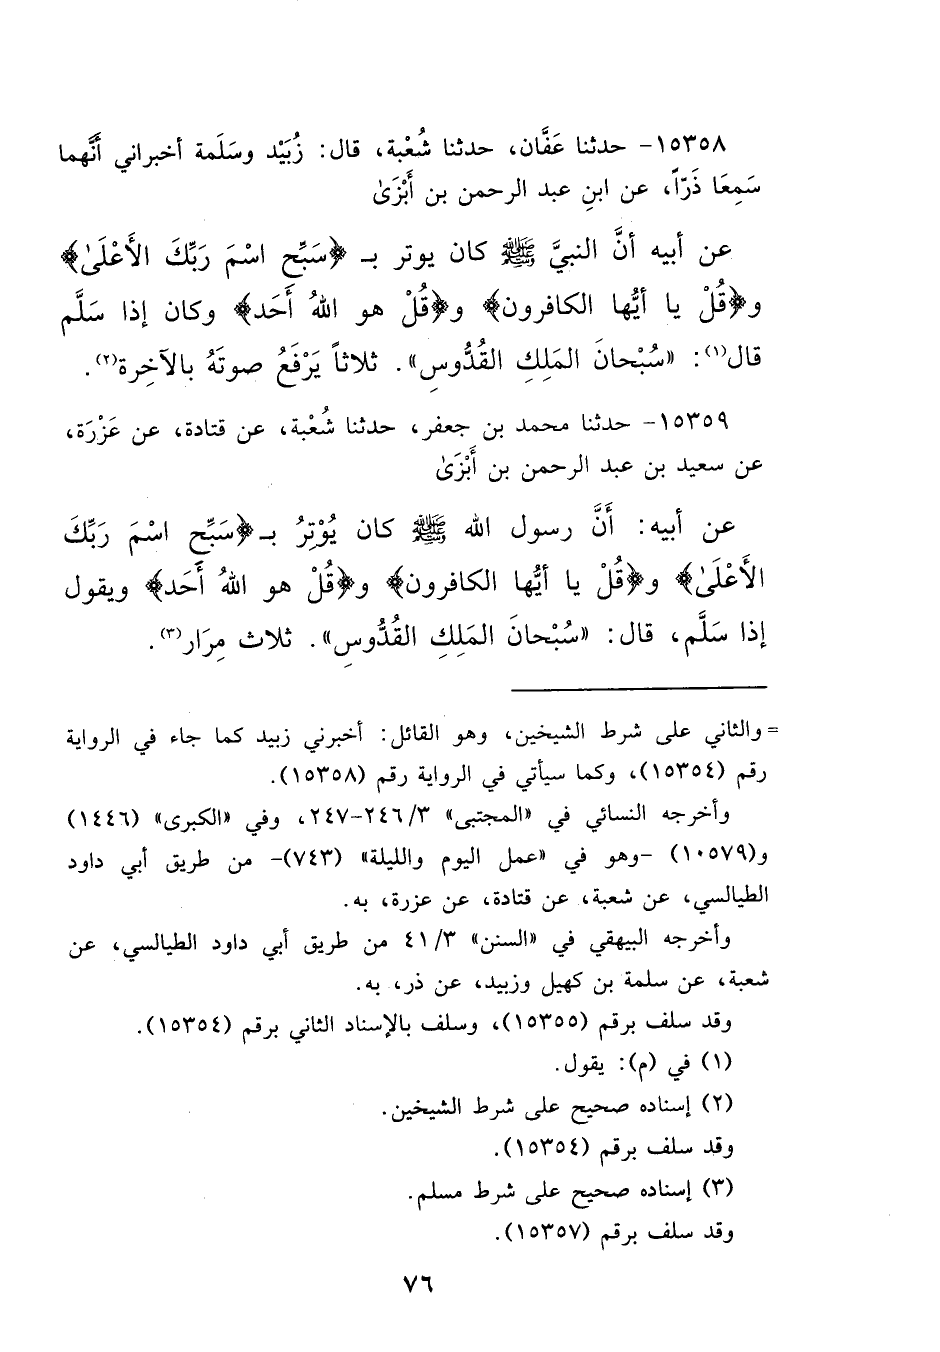 ١٥٣٥٨- حدثنا عَفَّان، حدثنا شُعْبة، قال: زُبَيْد وسَلَمة أخبراني أنَّهما
سَمِعَا ذَرّاً، عن ابنِ عبد الرحمن بن أَبْزَىٰ
عن أبيه أنَّ النبيَّ ﷺ كان يوتر بـ ﴿سَبِّحِ اسْمَ رَبِّكَ الأَعْلَىٰ﴾
و﴿قُلْ يا أيُّها الكافرون﴾ و﴿قُلْ هو اللهُ أَحَد﴾ وكان إذا سَلَّم
قال(١): «سُبْحانَ المَلِكِ القُدُّوسِ». ثلاثاً يَرْفَعُ صوتَهُ بالآخِرة(٢).
١٥٣٥٩- حدثنا محمد بن جعفر، حدثنا شُعْبة، عن قتادة، عن عَزْرَة،
عن سعيد بن عبد الرحمن بن أَبْزَىٰ
عن أبيه: أَنَّ رسول الله ﷺ كان يُوْتِرُ بـ﴿سَبِّحِ اسْمَ رَبِّكَ
الأَعْلَىٰ﴾ و﴿قُلْ يا أيُّها الكافرون﴾ و﴿قُلْ هو اللهُ أَحَد﴾ ويقول
إذا سَلَّم، قال: «سُبْحانَ المَلِكِ القُدُّوسِ». ثلاث مِرَار(٣).
= والثاني على شرط الشيخين، وهو القائل: أخبرني زبيد كما جاء في الرواية
رقم (١٥٣٥٤)، وكما سيأتي في الرواية رقم (١٥٣٥٨).
وأخرجه النسائي في «المجتبى» ٢٤٦/٣-٢٤٧، وفي «الكبرى» (١٤٤٦)
و(١٠٥٧٩) -وهو في «عمل اليوم والليلة» (٧٤٣)- من طريق أبي داود
الطيالسي، عن شعبة، عن قتادة، عن عزرة، به.
وأخرجه البيهقي في «السنن» ٤١/٣ من طريق أبي داود الطيالسي، عن
شعبة، عن سلمة بن كهيل وزبيد، عن ذر، به.
وقد سلف برقم (١٥٣٥٥)، وسلف بالإسناد الثاني برقم (١٥٣٥٤).
(١) في (م): يقول.
(٢) إسناده صحيح على شرط الشيخين.
وقد سلف برقم (١٥٣٥٤).
(٣) إسناده صحيح على شرط مسلم.
وقد سلف برقم (١٥٣٥٧).
٧٦